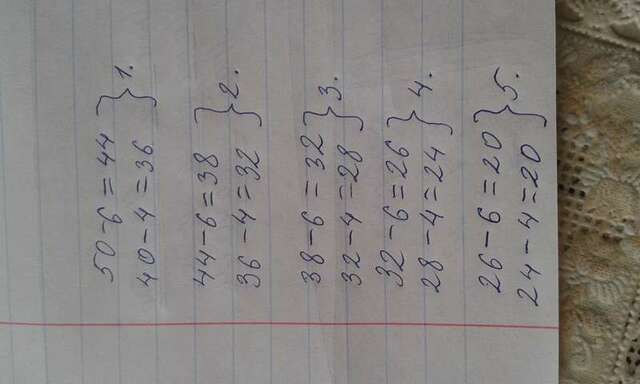 50-6=44 } 1.
40-4=36
44-6=38 } 2.
36-4=32
38-6=32 } 3.
32-4=28
32-6=26 } 4.
28-4=24
26-6=20 } 5.
24-4=20